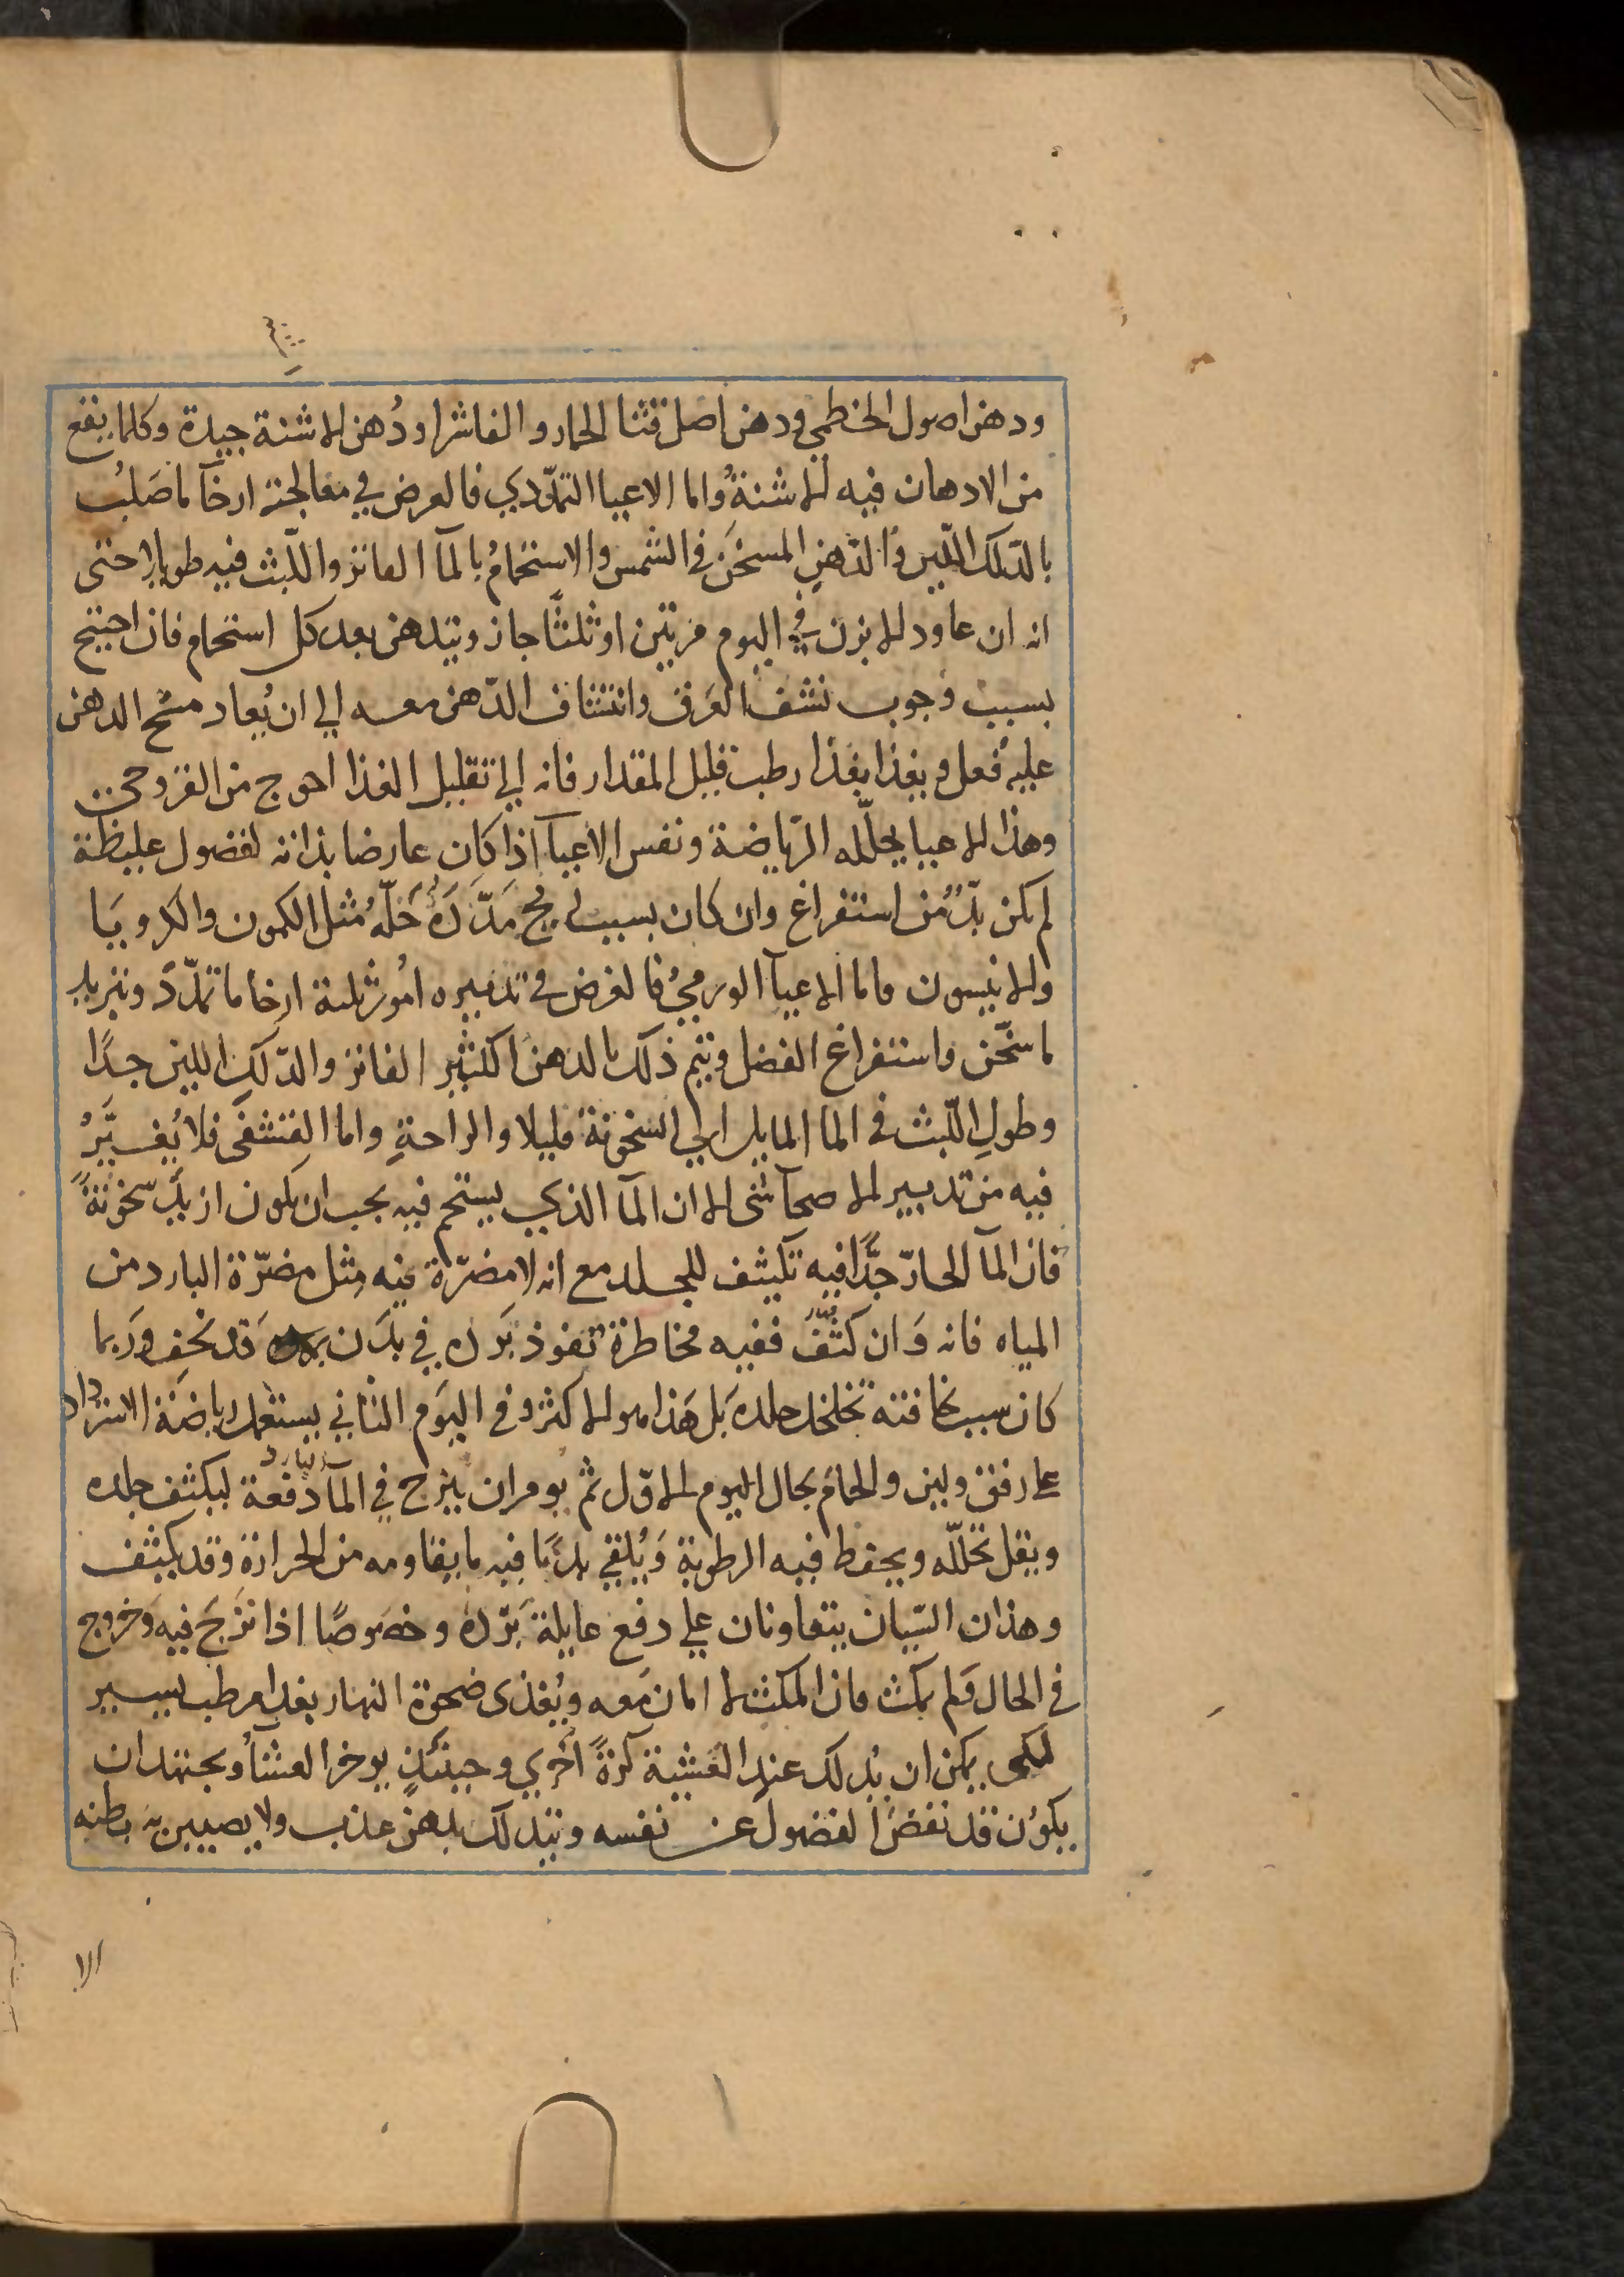 ودهن اصول الخطمي ودهن اصل قثا الحمار و الفاشرا ودُهن الاشنة جيدة وكلما ينفع
من الادهان فيه الاشنةُ واما الاعيا التمدّدي فالعرض في معالجته ارخآ ما صَلبُ
بالدّلك الليّن وَالدّهنِ المسخّنَ في الشمس والاستحمامُ بالمآ الفاتر واللّبث فيه طويلا حتى
انه ان عاود الابزن في اليوم مرتين او ثلثًا جاز ويتدهن بعد كل استحمام فان احتيج
بسبب وجوب نشف العَرق وانتشاف الدّهن معه الي ان يُعاد مسّح الدهن
عليه فعل ويغذا بغذا رطب قليل المقدار فانه الي تقليل الغذا احوج من القروحي
وهذا الاعيا يحلّله الرّياضة ونفس الاعيآ اذا كان عارضا بذاته لفضول غليظة
لم يكن بدٌّ من استفراغ وان كان بسبب ريح مَدّدَهُ حَلّهُ مثل الكمون والكرويَا
والانيسون واما الاعيآ الورمي فالغرض في تدبيره امُور ثلثة ارخا ما تمدّد وتبريد
ما سخّن واستفراغ الفضل ويتم ذلك بالدهن الكثير الفاتر والدّلك اللين جدًا
وطولِ اللّبث في الما المايل الي السخونة قليلا والراحةِ واما القشفى فلا يُغيّرُ
فيه من تدبير الاصحآ شى الا ان المآ الذي يستحم فيه يجب ان يكون ازيد سخونةً
فان المآ الحارّ جدًّا فيه تكثيف للجلد مع انه لا مضرّة فيه مثل مضرّة البارد من
المياه فانه وَان كثّفَ ففيه مخاطرة نفوذ بَرده في بدَن قد نحف وربما
كان سبب نحافته تخلخل جلده بَل هَذا هو الاكثر وفي اليوم الثاني يستعمل رياضة الاسترداد
علي رفق ولين والحمام بحال اليوم الاوّل ثم يومر ان يزج في المآ البارد دفعة ليكثف جلده
ويقل تحلّله ويحفظ فيه الرطوبة وَيُلقي بدَنا فيه ما يقاومه من الحرارة وقد يكثف
وهذان السّببان يتعاونان علي دفع غايلة بَرده وخصَوصًا اذا نزج فيه وخروج
في الحال ولم يمكث فان المكث لا امان مَعه ويُغذى ضحوة النهار بغدا مرطب يسير
لكى يمكن ان يُدلك عند العَشية كرّةً اخري وحينئذٍ يوخر العشآ ويجتهد ان
يكوُن قد نفضَ الفضول عن نفسه ويتدلك بدهن عذب ولا يصيبن به بطنه
الا